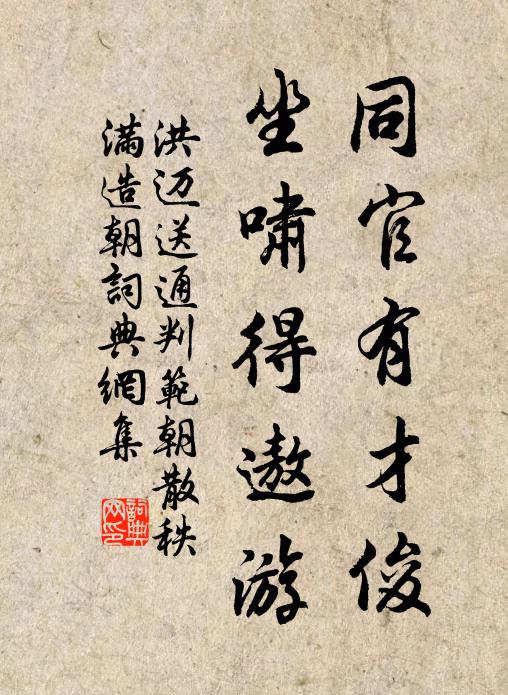 同官有才俊
坐啸得遨游
洪迈送通判範朝散秩
满造朝詞典網集
詞典网印